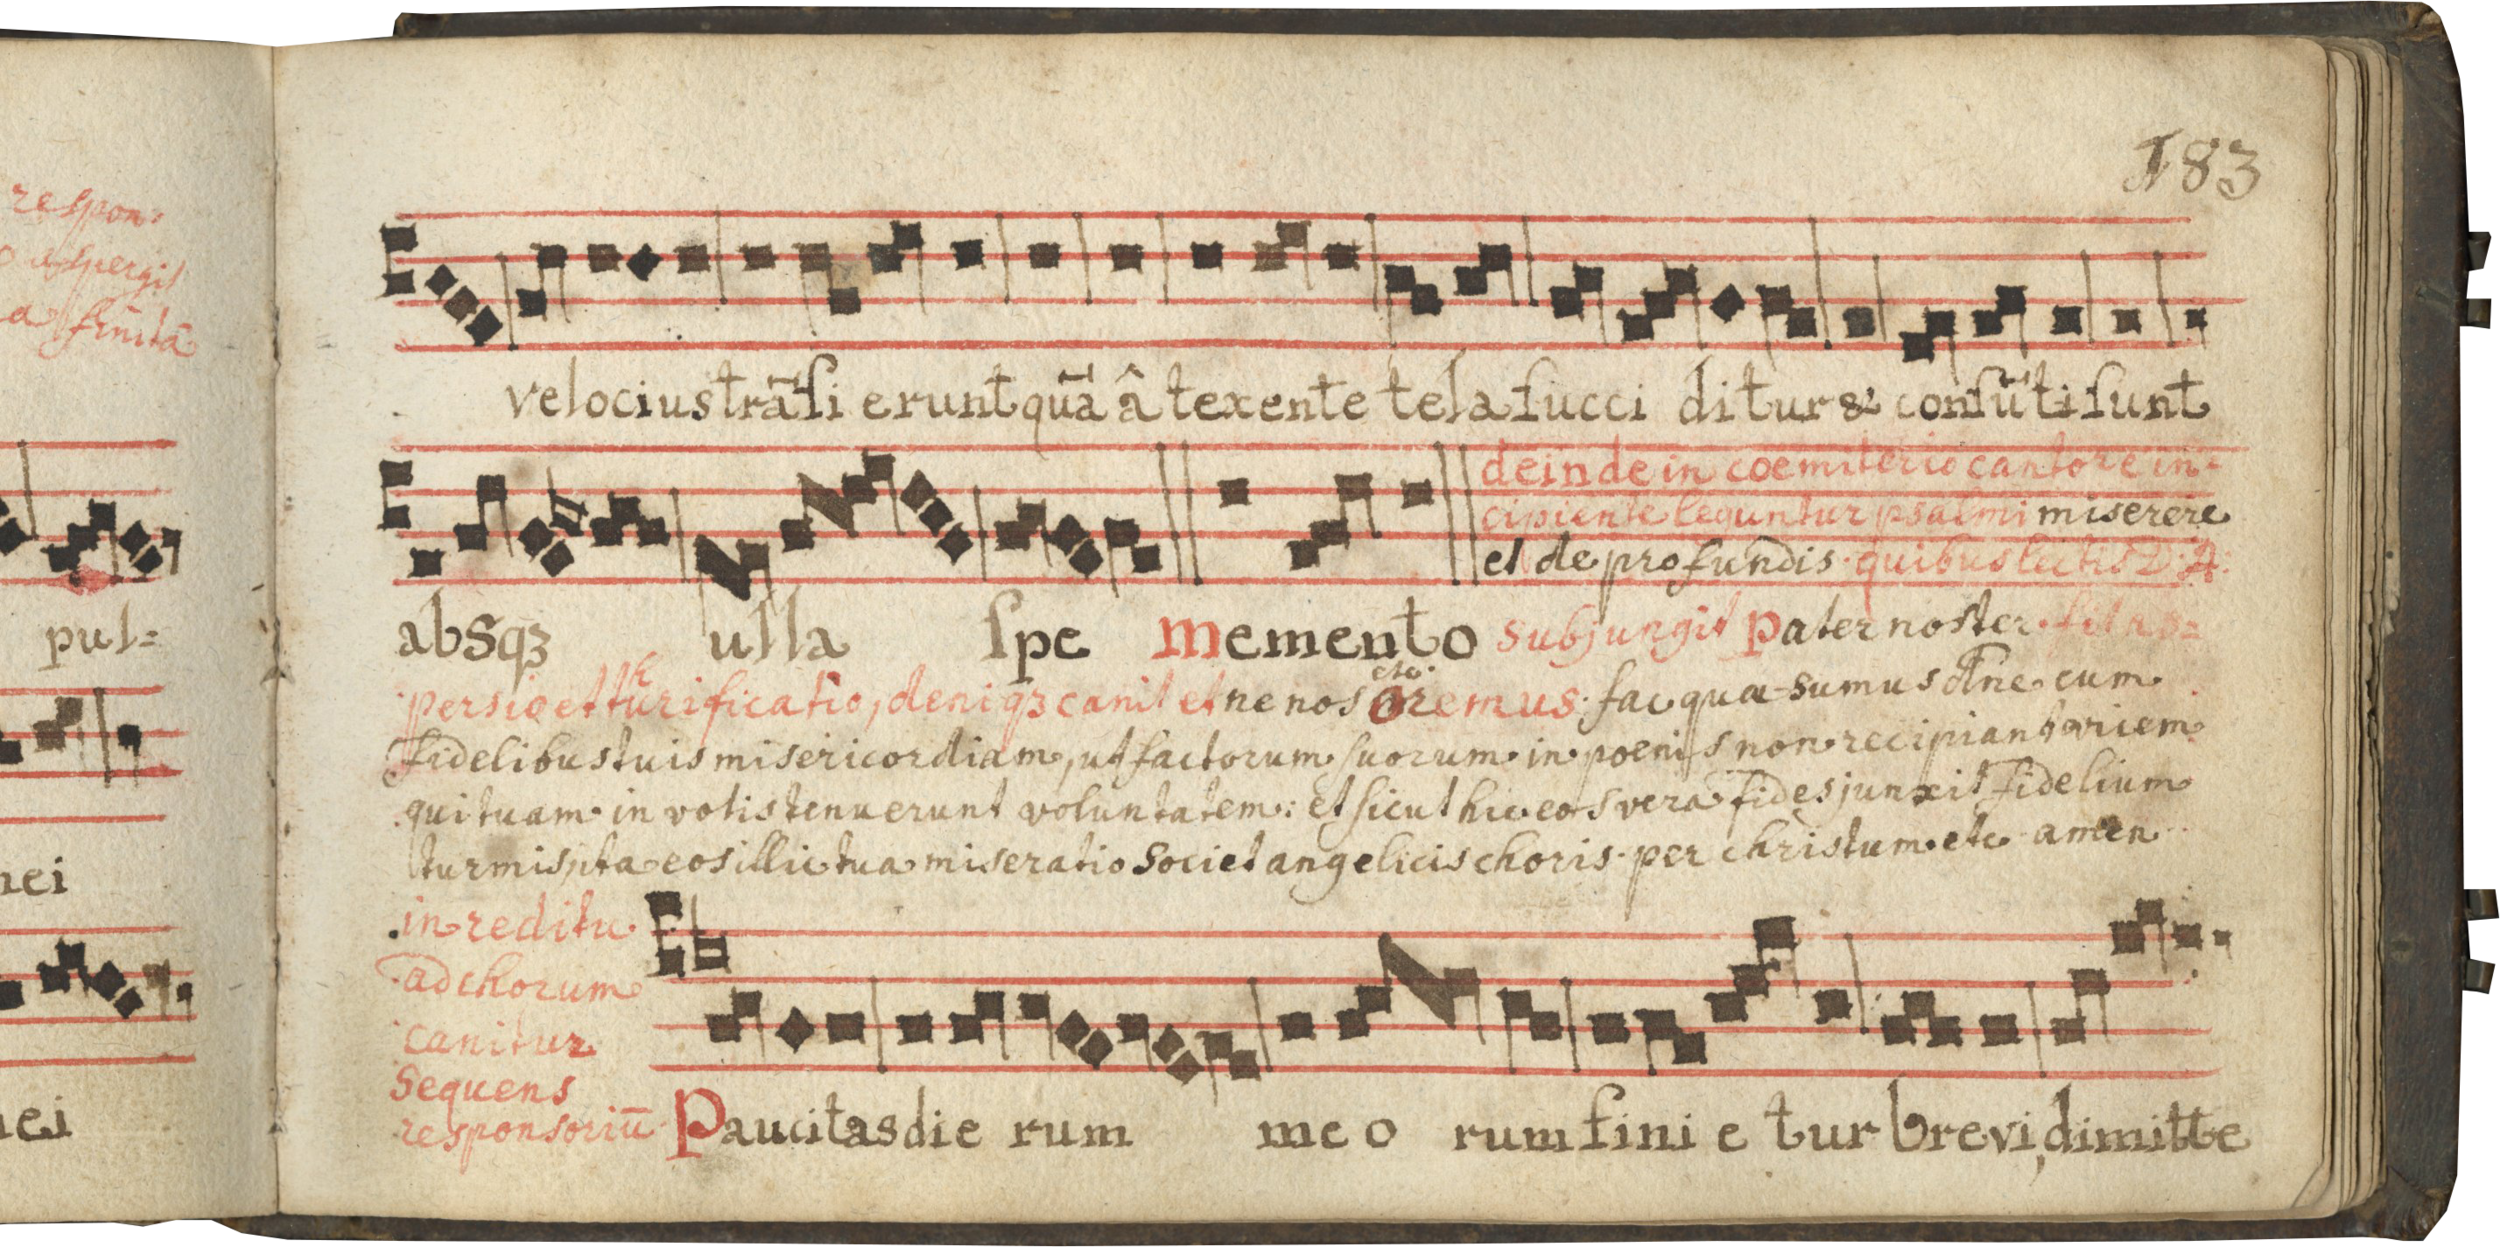 respon:
aspergit
pul=
nei
nei
183
velocius trā̄si erunt quā̄ â texente tela succi ditur & consū̄ti sunt
deinde in coemiterio cantore in-
cipiente leguntur psalmi miserere
et de profundis. quibus lectis D: A:
absqꝫ ulla spe memento subjungit Pater noster. fit as=
persio et thurificatio, deniqꝫ canit et ne nos etc. oremus. fac quæsumus dn̄e cum
fidelibus tuis misericordiam, ut factorum suorum in poenis non recipiant vicem
qui tuam in votis tenuerunt voluntatem: et sicut hic eos vera fides junxit fidelium
turmis, ita eos illic tua miseratio societ angelicis choris. per christum etc. amen
in reditu
ad chorum
canitur
sequens
responsoriū
Paucitas die rum me o rum fini e tur brevi, dimitte